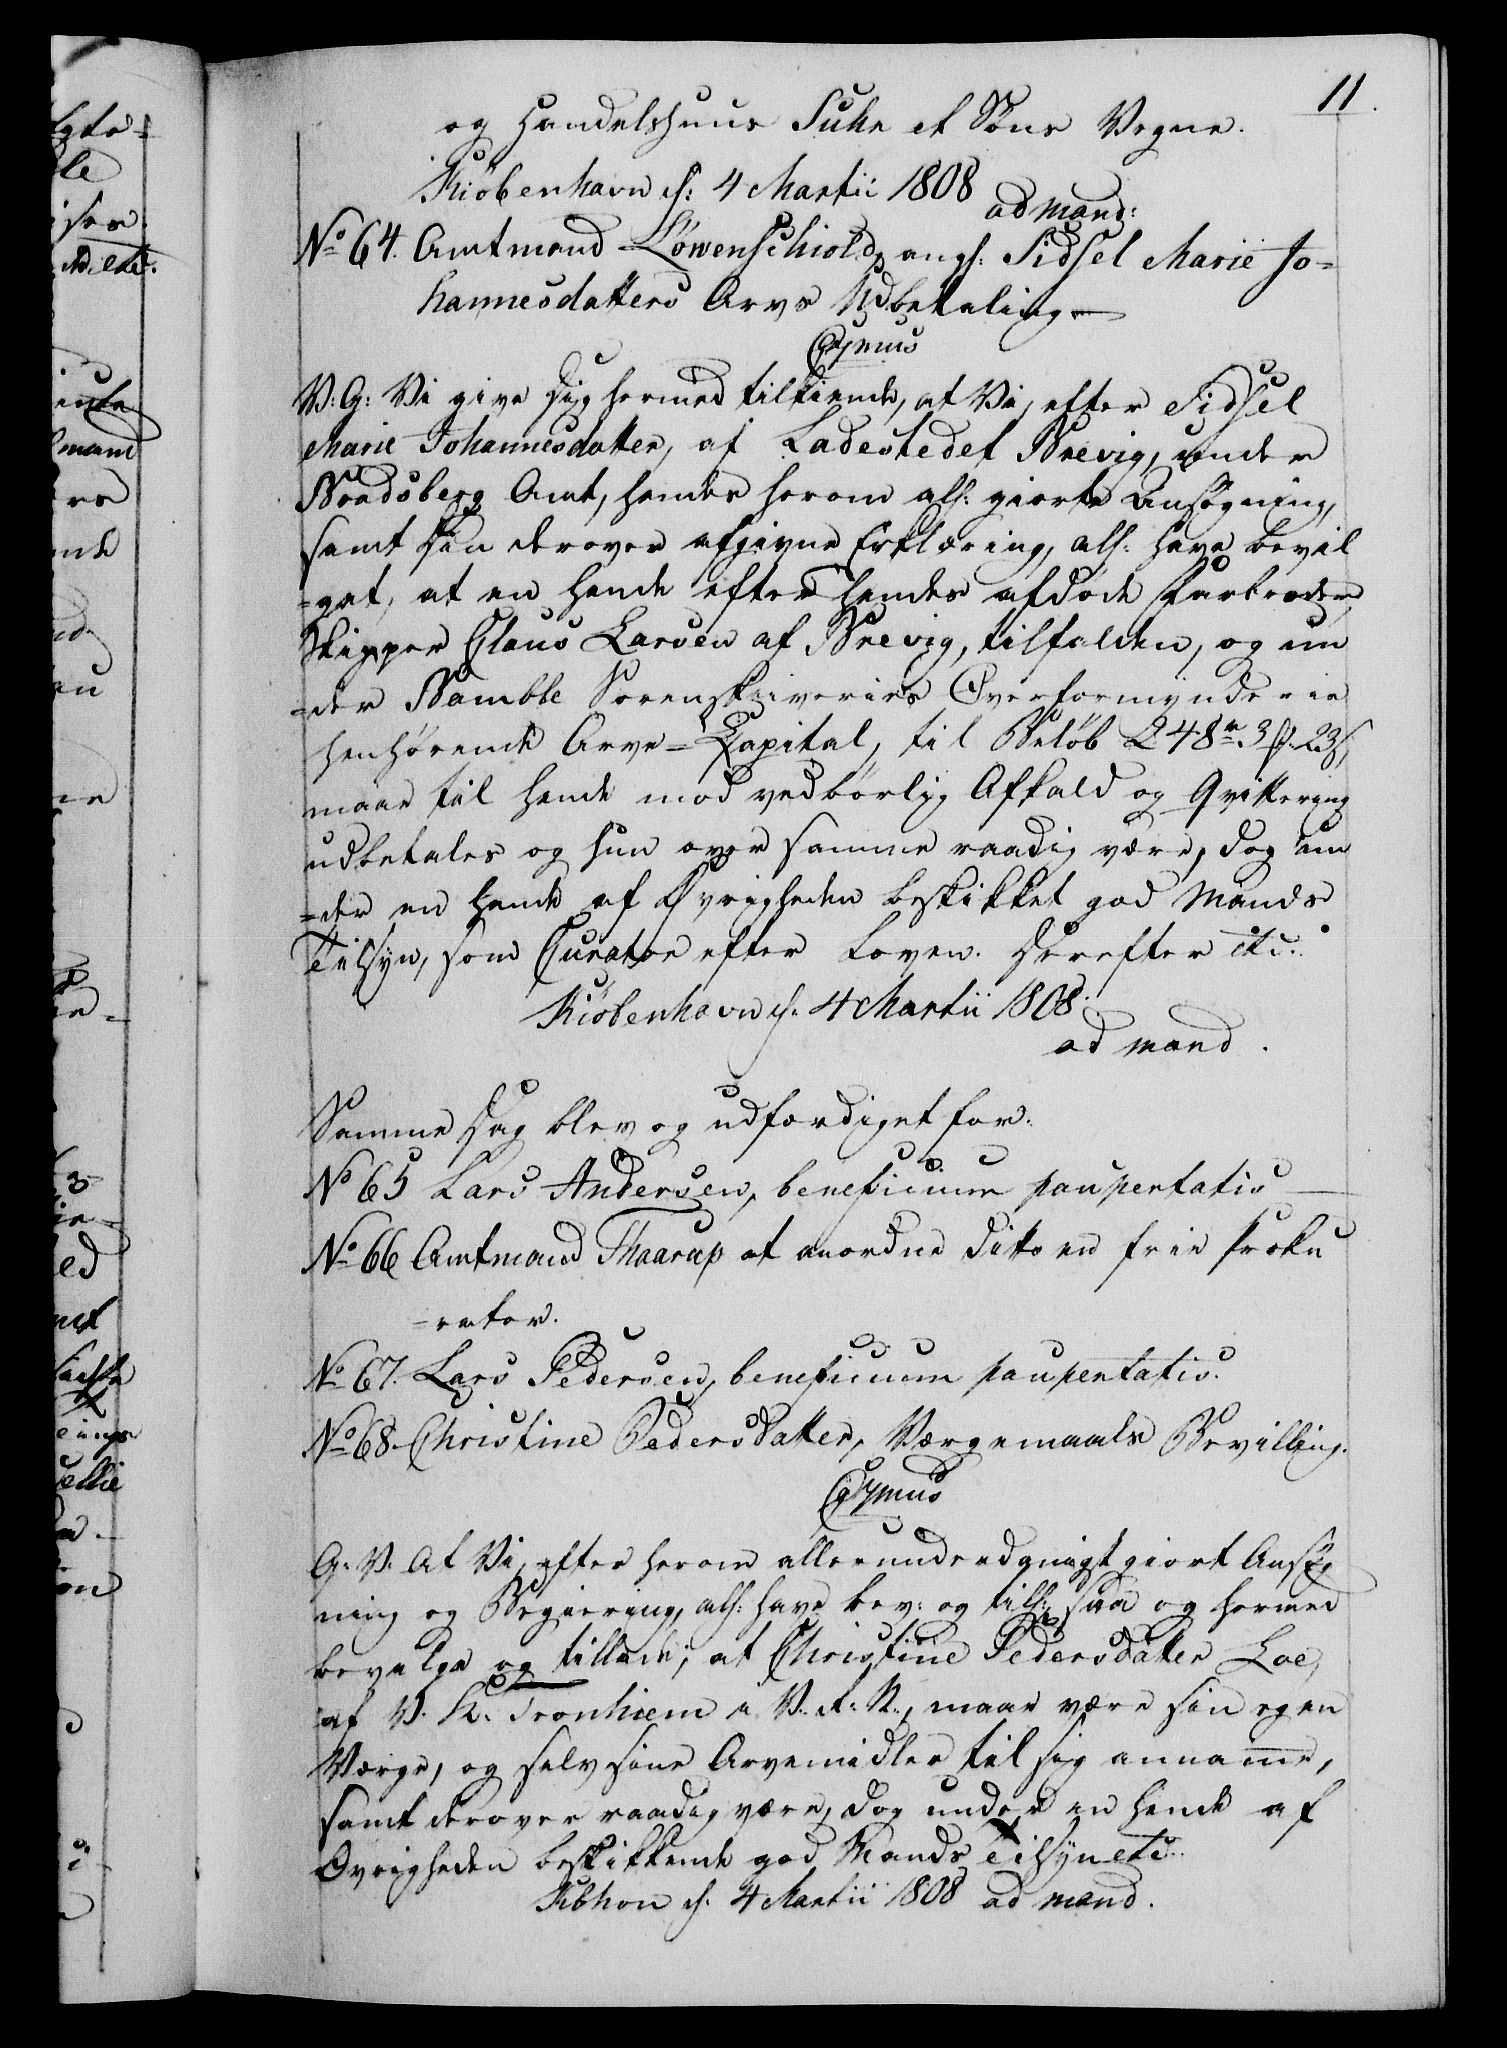 11.
og Handelshuus Suhr et Søns Vegne.
Kiöbenhavn d: 4 Martii 1808
ad mand:
No 64. Amtmand Löwenschiold, angl. Sidsel Marie Jo=
hannesdatters Arvs Udbetaling
C 7mus
V: G: Vi give Dig hermed tilkiende, at Vi, efter Sidsel
Marie Johannesdatter, af Ladestedet Brevig, under
Bradsberg Amt, hendes herom all: giorte Ansøgning,
samt Din derover afgivne Erklæring, all: have bevil
=get, at en hende efter hendes afdøde Farbroder,
Skipper Claus Larsen af Brevig, tilfalden, og un
=der Bamble Sorenskriveries Overformynderie
henhørende Arve=Kapital, til Beløb 248 r. 3 ß. 23 s,
maae til hende mod vedbørlig Afkald og Qvittering
udbetales og hun over samme raadig være, dog un
=der en hende af Øvrigheden beskikket god Mands
Tilsyn, som Curator efter Loven. Derefter etc:
Kiöbenhavn d: 4 Martii 1808.
ad mand.
Samme Dag blev og udfærdiget for:
No 65 Lars Andersen, beneficium paupertatis
No 66 Amtmand Thaarup at anordne ditto en frie Proku
=rator.
No 67. Lars Pedersen, beneficium paupertatis.
No 68. Christine Pedersdatter, Værgemaals Bevilling.
C 7mus
G: V: At Vi, efter herom allerunderdanigst giort Ansøg
ning og Begiering, all: have bev: og till:, saa og hermed
bevilge og tillade, at Christine Pedersdatter Loe,
af V. K. Tronhiem i V. R. N., maae være sin egen
Værge, og selv sine Arvemidler til sig annamme,
samt derover raadig være, dog under en hende af
Øvrigheden beskikkende god Mands Tilsyn etc:
Kbhvn d. 4 Martii 1808 ad mand.